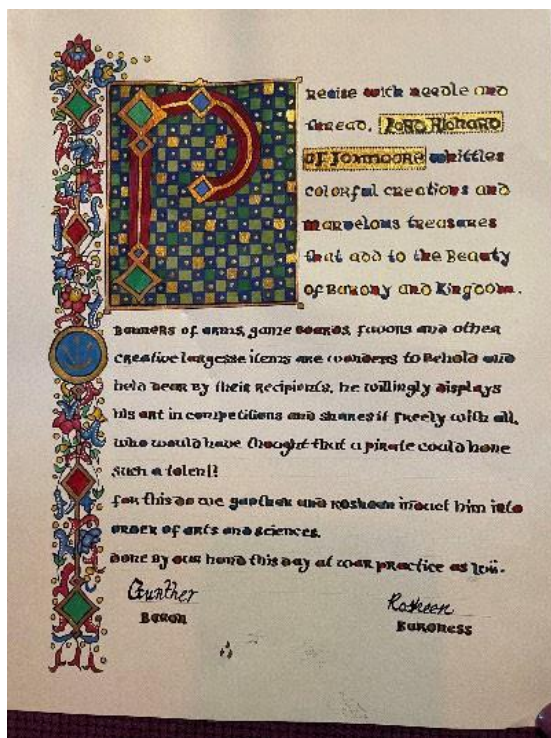 Precise with needle and
thread, Lord Richard
of Foxmoore whittles
colorful creations and
marvelous treasures
that add to the Beauty
of Barony and Kingdom.
Banners of arms, game boards, favors and other
creative largesse items are wonders to Behold and
held dear By their recipients. he willingly displays
his art in competitions and shares it freely with all.
who would have thought that a pirate could hone
such a talent?
for this do we gunther and Rosheen induct him into
order of arts and sciences.
done By our hand this day at war practice as
Gunther
Rosheen
Baron
Baroness